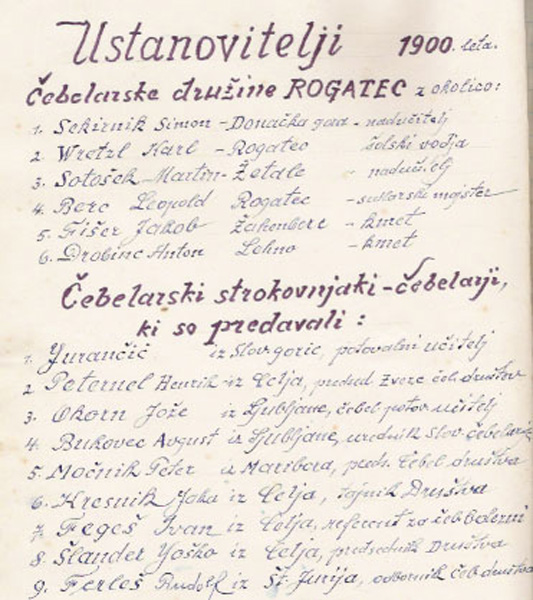 Ustanovitelji 1900. leta.
Čebelarske družine ROGATEC z okolico:
1. Sekirnik Simon - Donačka gora - nadučitelj
2 Wretzl Karl - Rogatec šolski vodja
3. Sotošek Martin - Žetale - nadučitelj
4. Berc Leopold Rogatec - sodarski mojster
5. Fišer Jakob Žahenberc - kmet
6. Drobinc Anton Lehno - kmet
Čebelarski strokovnjaki - čebelarji,
ki so predavali:
1. Jurančič iz Slov. goric, potovalni učitelj
2 Peternel Henrik iz Celja, predsd Zveze čeb. društev
3. Okorn Jože iz Ljubljane, čebel. potov. učitelj
4. Bukovec Avgust iz Ljubljane, urednik Slov. čebelarja
5. Močnik Peter iz Maribora, preds. čebel. društva
6. Kresnik Jaka iz Celja, tajnik Društva
7. Fegeš Ivan iz Celja, referent za čeb. bolezni
8. Šlander Joško iz Celja, predsednik Društva
9. Ferleš Rudolf iz Št. Jurija, odbornik čeb. društva